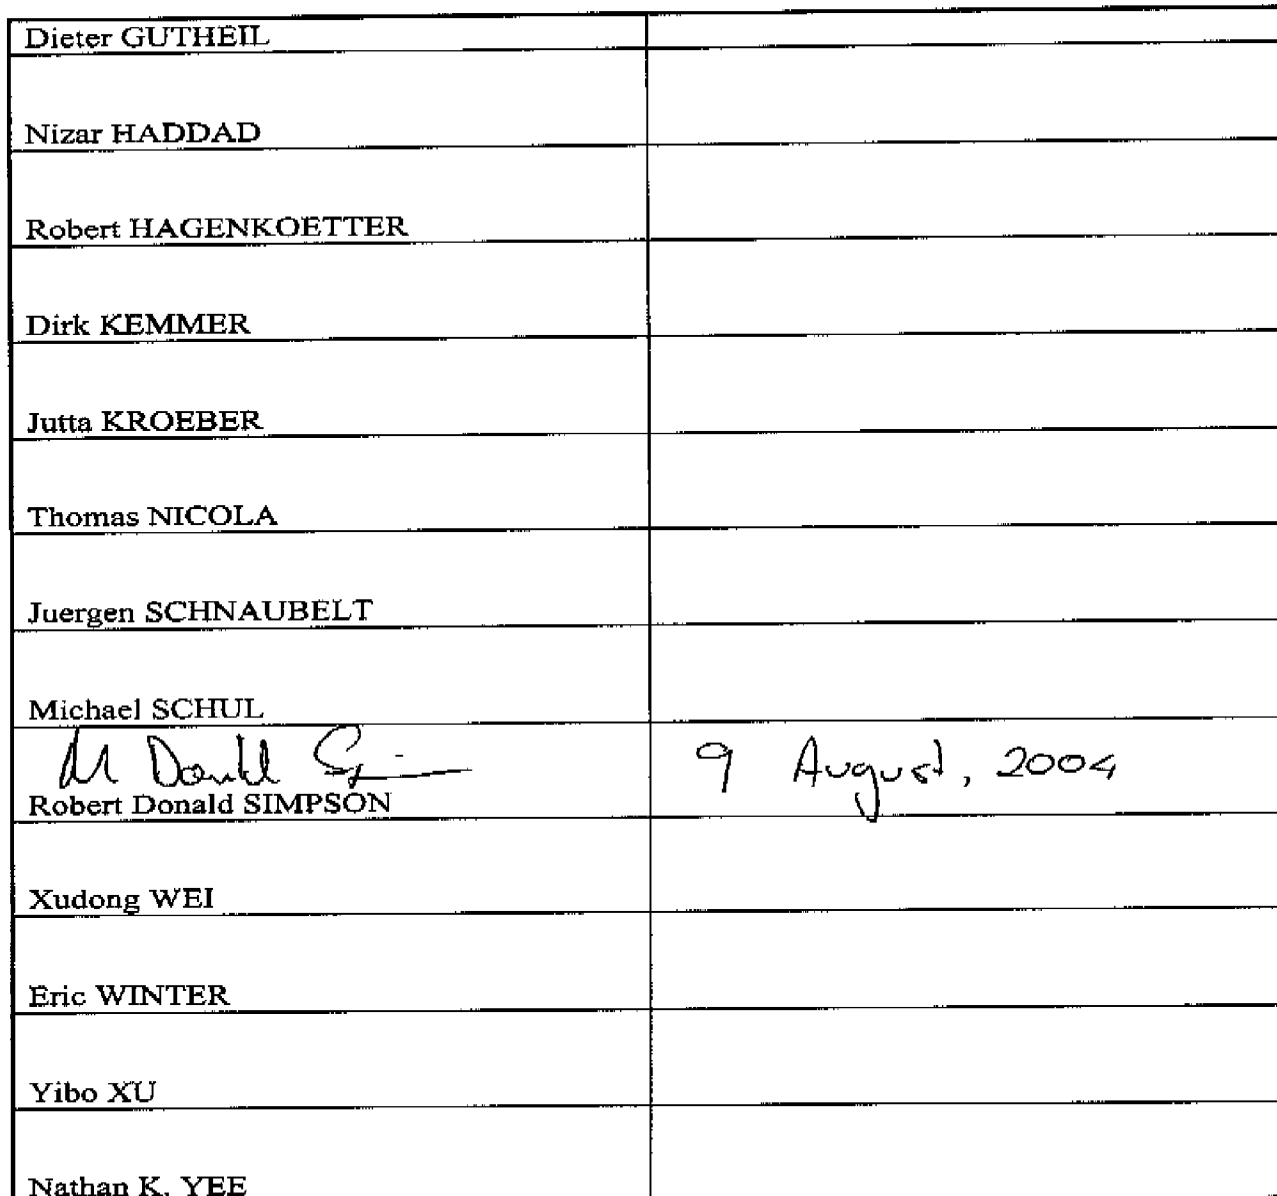 Dieter GUTHEIL
Nizar HADDAD
Robert HAGENKOETTER
Dirk KEMMER
Jutta KROEBER
Thomas NICOLA
Juergen SCHNAUBELT
Michael SCHUL
Donald 9 August, 2004
Robert Donald SIMPSON
Xudong WEI
Eric WINTER
Yibo XU
Nathan K. YEE